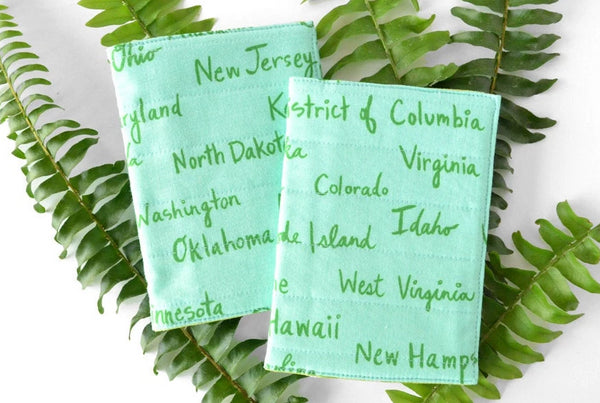 Ohio
New Jersey
ryland
North Dakot
Washington
Oklahoma
nnesota
strict of Columbia
ka
Virginia
Colorado
Idaho
de Island
e
West Virginia
Hawaii
New Hamps
olina